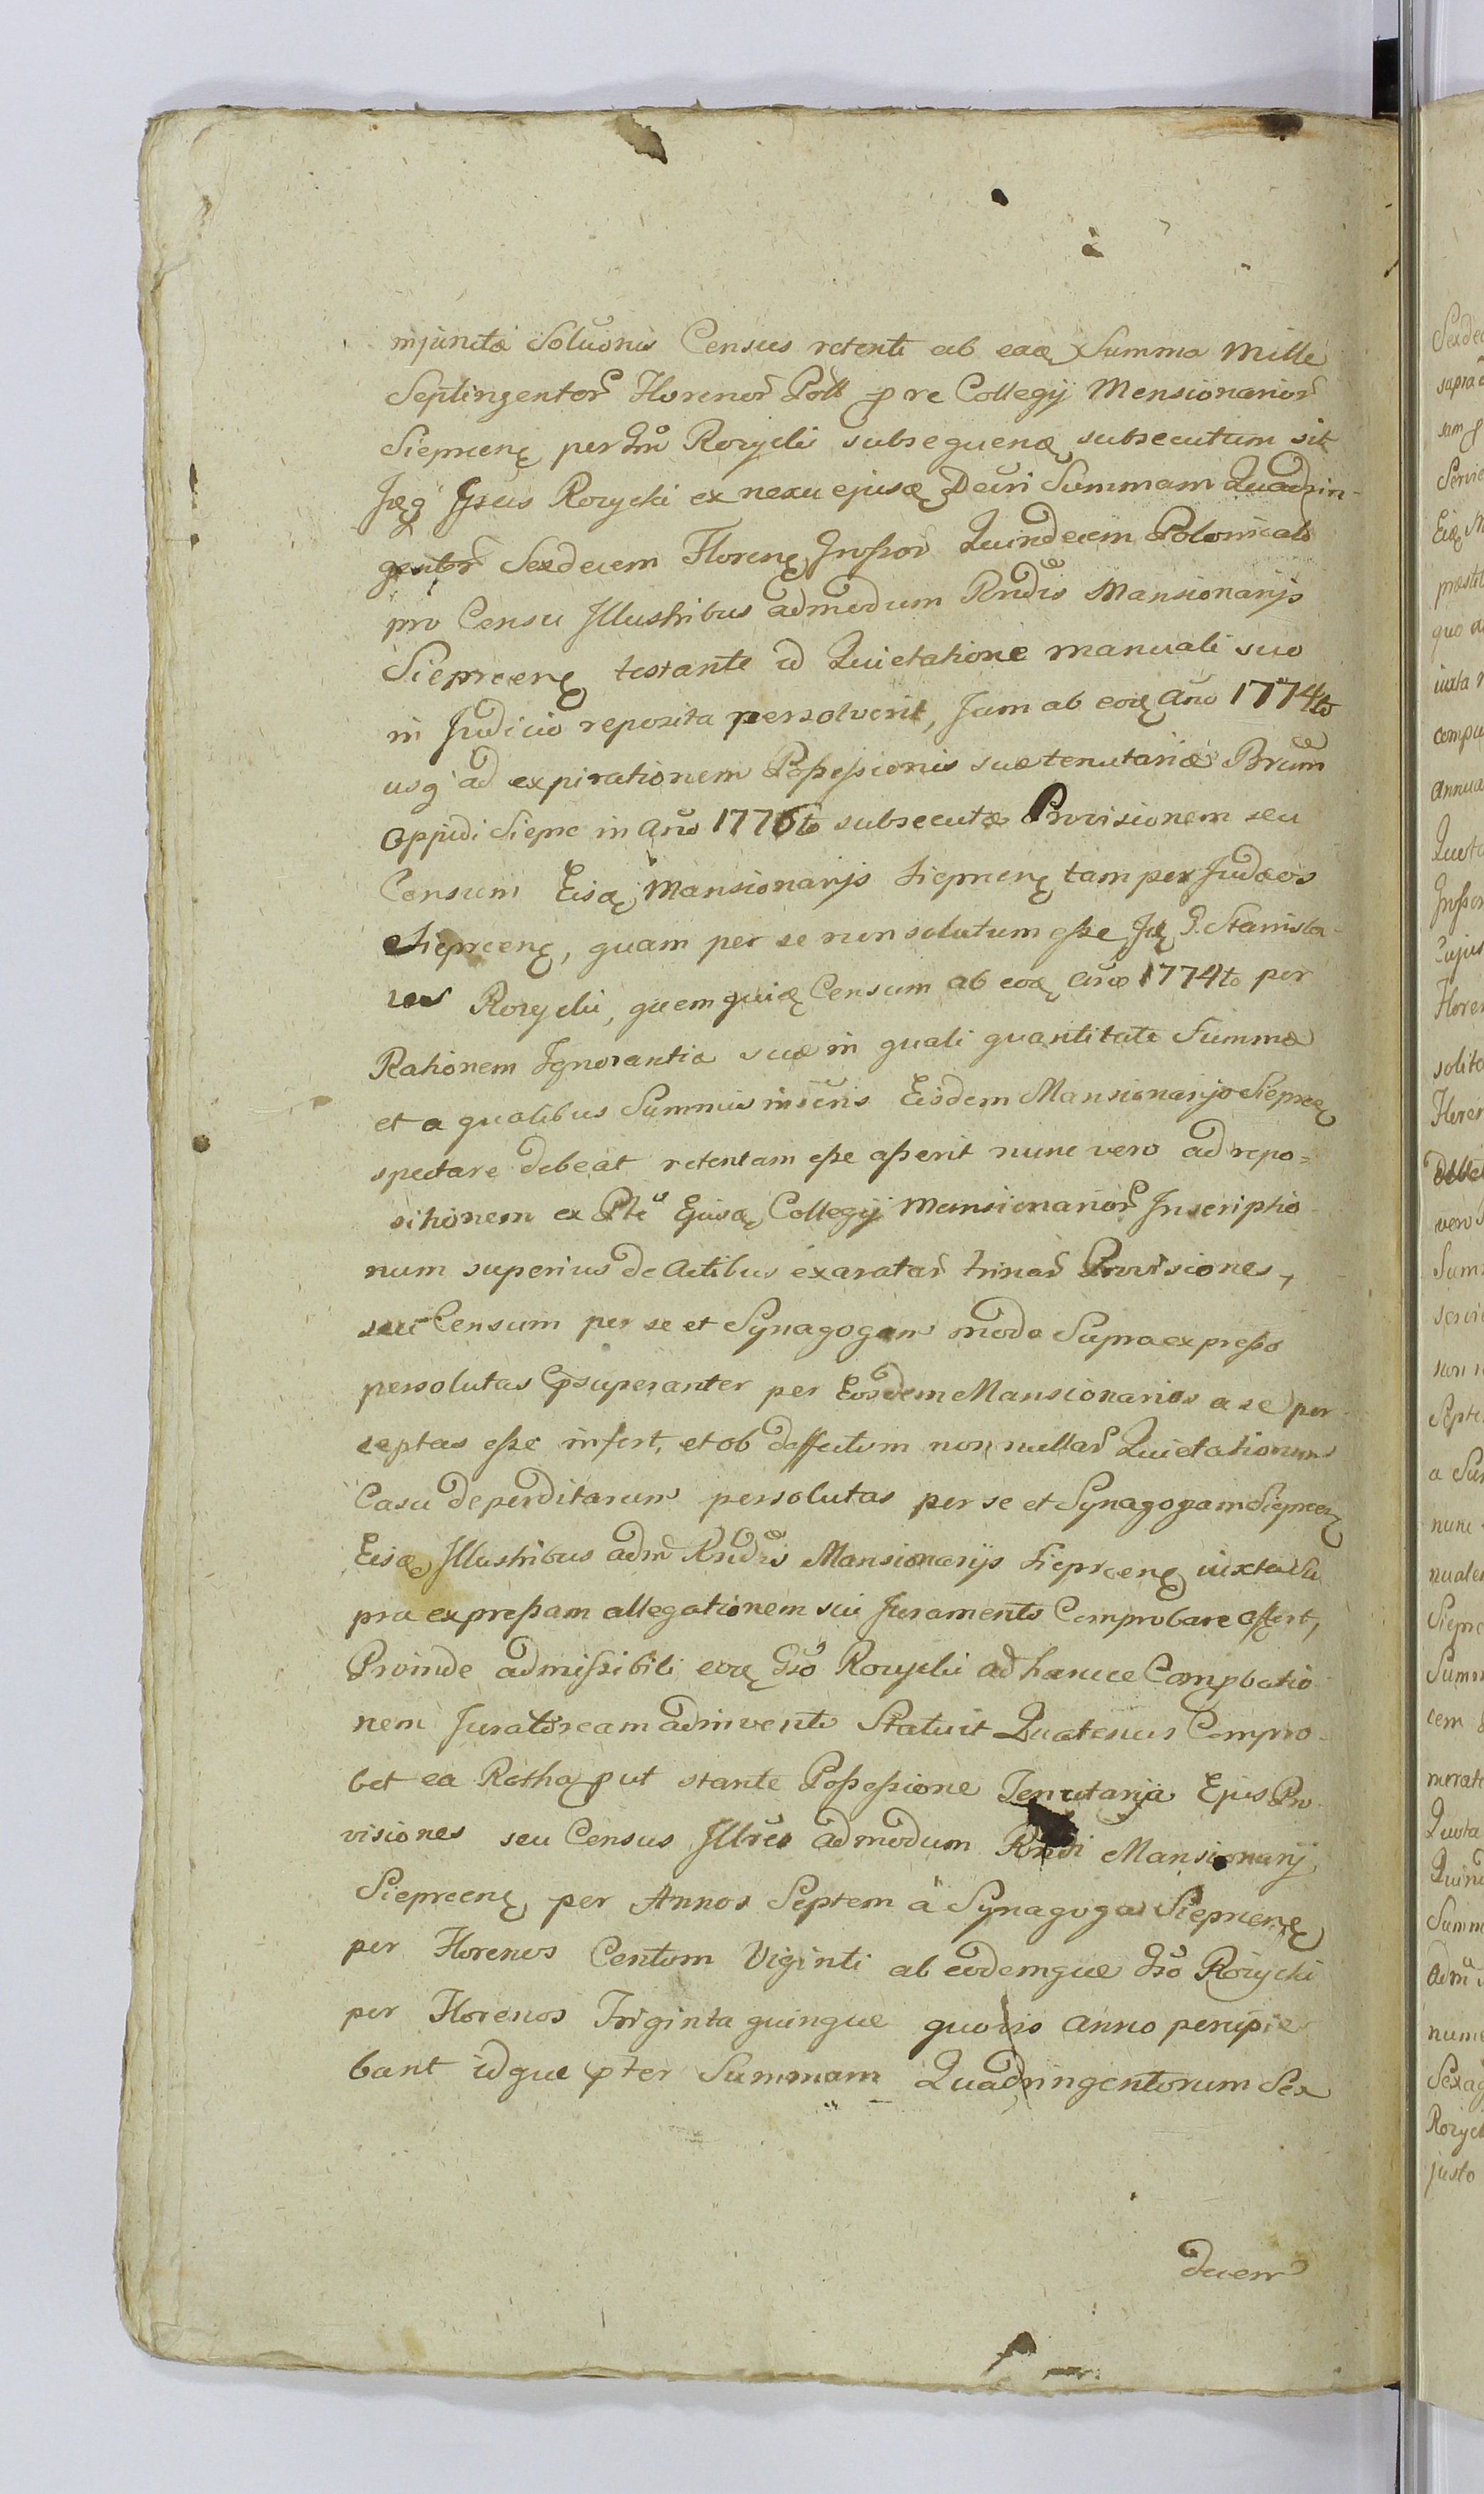 injunctæ Soluonis Census retenti ab eadę Summa Mille
Septingentor Florenor Poll p re Collegij Mensionarior
Sieprcenę per Gnū Rozycki subsequenę subsecutum sit
Idęq Gsus Rozycki ex nexu ejusdę Decūri Summam Quadrin-
gentor Sexdecem Florenę Grossor Quindecim Polonicalē
pro Censu Illustribus admodum Rndīs Mansionarijs
Sieprcenę testante id Quietatione manuali suo
in Judicio reposita persolverit, Jam ab eodę Año 1774to
usq ad expirationem Possessionis suæ tenutariæ Brum
Oppidi Sieprc in Año 1776to subsecutæ Provisionem seu
Censum Eisdę Mansionarijs Sieprcenę tam per Judæos
Sieprcenę, quam per se non solutum esse Idę G. Stanisla-
us Rozycki, quem quidę Censum ab eodę Año 1774to per
Rationem Ignorantiæ suæ in quali quantitate Summæ
et a qualibus Summis inscris Eisdem Mansionarijs Sieprcę
spectare debeat retentam esse asserit nunc vero ad repo=
sitionem ex Pte Ejusdę Collegij Mansionarior Inscriptio-
num superius de Actibus exaratar trinar Provisiones,
seu Censum per se et Synagogam modo Supra expresso
persolutas psuperanter per Eosdem Mansionarios a se per-
ceptas esse infert, et ob deffectum non nullar Quietationum
Casu deperditarum persolutas per se et Synagogam Sieprcenę
Eisdę Illustribus adm Rndīs Mansionarijs Sieprcenę iuxta Su
pra expressam allegationem sui Juramento Comprobare offert,
Proinde admissibili eodę Gso Rozycki ad hancce Compbatio-
nem Juratoream adinvento Statuit Quatenus Compro-
bet ea Rotha put stante Possessione Tenutarija Ejus Pro-
visiones seu Census Illres admodum Rndi Mansionarij
Sieprcenę per Annos Septem a Synagoga Sieprcenę
per Florenos Centum Viginti ab eodemque Gso Rozycki
per Florenos Triginta quinque quovis anno percipie-
bant idque pter Summam Quadringentorum Sex
decem